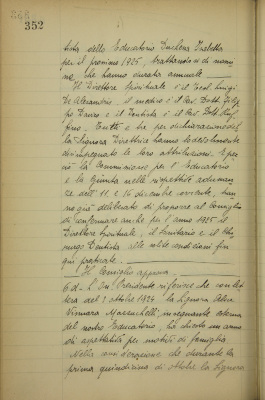 352
tista dello Educatorio Duchessa Isabella
per il prossimo 1925, trattandosi di nomine
che hanno durata annuale.
Il Direttore Spirituale è il Sac. Luigi
De Alexandris, il medico è il Cav. Dott. Filippo
e il Dentista è il Cav. Dott. Ruffino.
Tutti e tre per dichiarazione del
la Signora Direttrice hanno lodevolmente
disimpegnato le loro attribuzioni, e perciò
la Commissione per l'Educatorio
e la Giunta nelle rispettive adunanze
dell' 11 e 16 dicembre corrente, hanno
già deliberato di proporre al Consiglio
di confermare anche per l'anno 1925 lo
Direttore Spirituale, il Sanitario e il Chirurgo
Dentista alle stesse condizioni fin
qui praticate.
Il Consiglio approva.
6 d - L'On. Presidente riferisce che con lettera
del 1 ottobre 1924 la Signora
insegnante esterna
del nostro Educatorio, ha chiesto un anno
di aspettativa per motivi di famiglia.
Nella che durante la
prima quindicina di ottobre la Signora